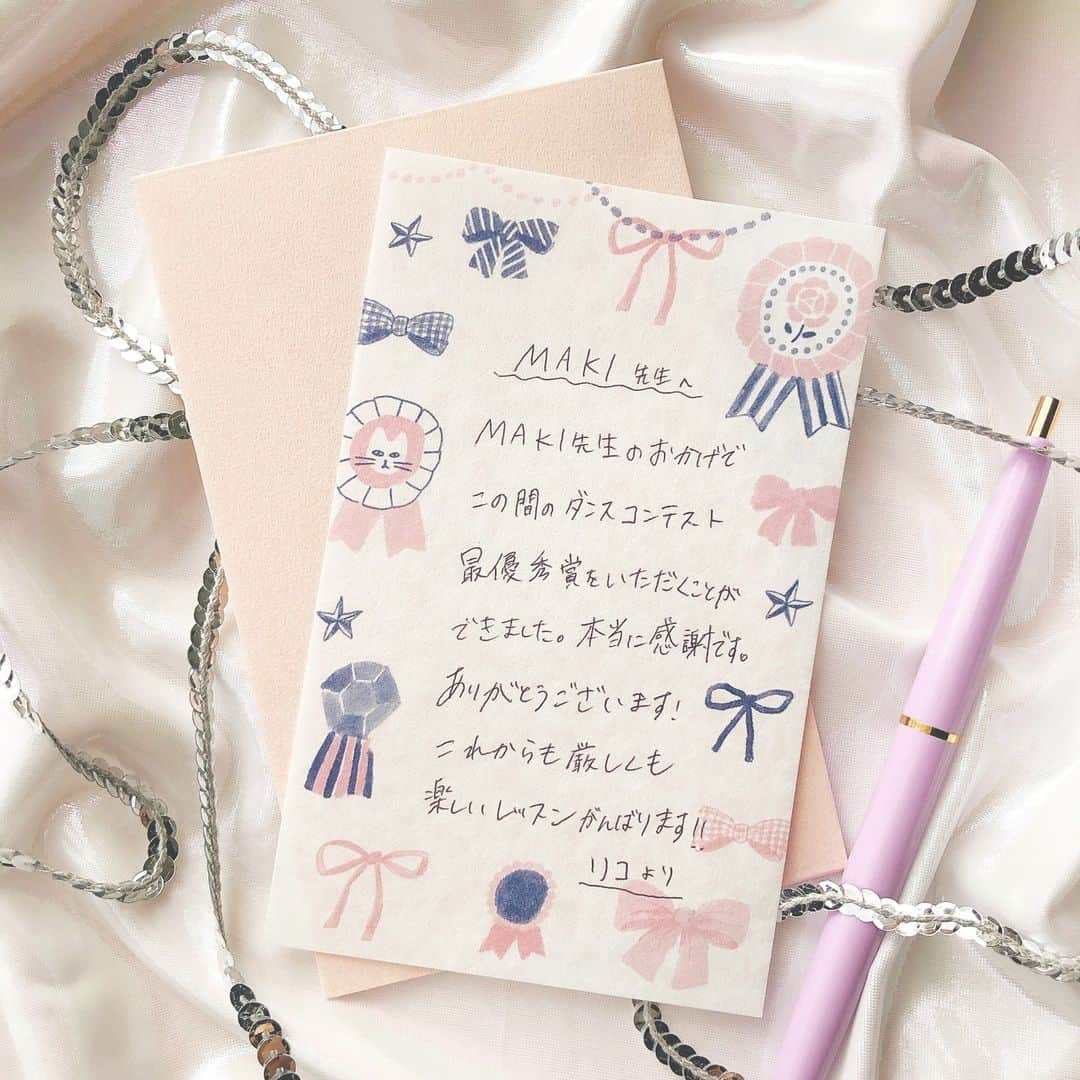 MAKI 先生へ
MAKI先生のおかげで
この間のダンスコンテスト
最優秀賞をいただくことが
できました。本当に感謝です。
ありがとうございます!
これからも厳しくも
楽しいレッスンがんばります!!
リコより